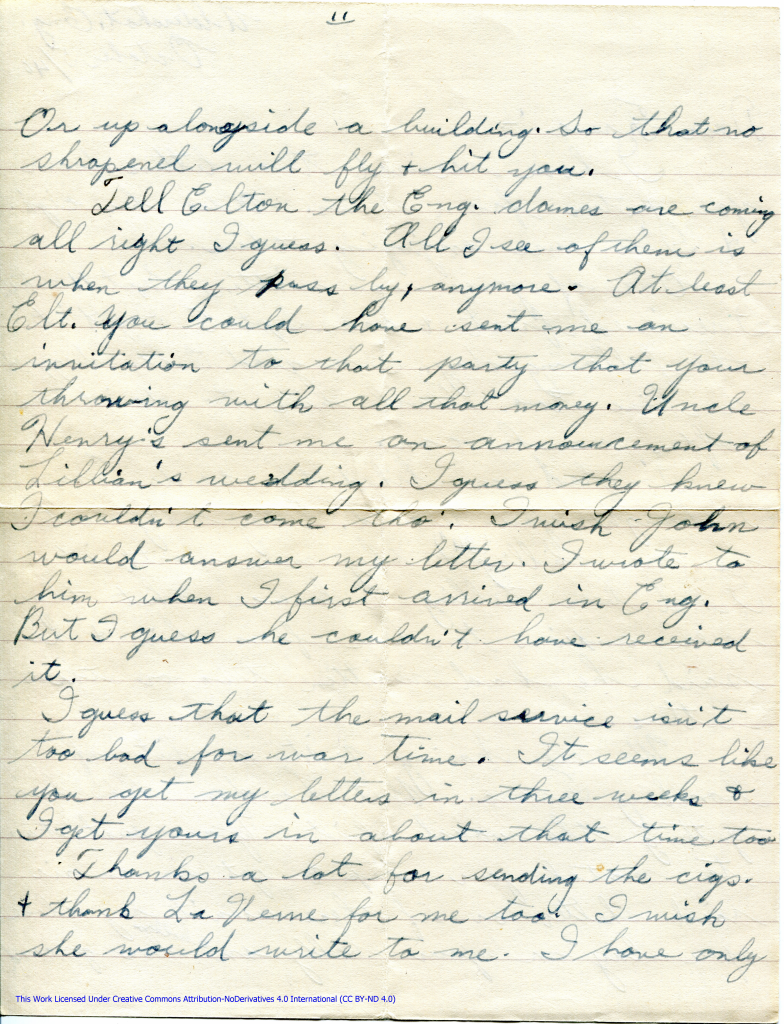 11
Or up alongside a building. So that no
shrapenel will fly & hit you.
Tell Elton the Eng. dames are coming
all right I guess. All I see of them is
when they pass by, anymore. At least
Elt. you could have sent me an
invitation to that party that your
throwing with all that money. Uncle
Henry's sent me an announcement of
Lillian's wedding. I guess they knew
I couldn't come tho'. I wish John
would answer my letter. I wrote to
him when I first arrived in Eng.
But I guess he couldn't have received
it.
I guess that the mail service isn't
too bad for war time. It seems like
you get my letters in three weeks &
I get yours in about that time too
Thanks a lot for sending the cigs.
& thank La Verne for me too. I wish
she would write to me. I have only
This Work Licensed Under Creative Commons Attribution-NoDerivatives 4.0 International (CC BY-ND 4.0)